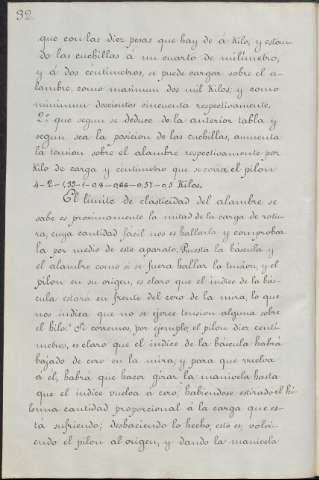 32
que con las diez pesas que hay de á Kilo, y estan-
do las cuchillas á un cuarto de milímetro,
y á dos centímetros, se puede cargar sobre el a-
lambre, como maximum dos mil Kilos, y como
minimum doscientos cincuenta respectivamente.
2º que segun se deduce de la anterior tabla y
segun sea la posicion de las cuchillas, aumenta
la tension sobre el alambre respectivamente por
Kilo de carga y centímetro que se corra el pilon
4-2-1,33-1-0,8-0,66-0,57-0,5 Kilos.
El límite de elasticidad del alambre se
sabe es proximamente la mitad de la carga de rotu-
ra, cuya cantidad facil nos es hallarla y comproban-
la por medio de este aparato. Puesta la báscula y
el alambre como si se fuera hallar la tension, y el
pilon en su origen, es claro que el indice de la bás-
cula estará en frente del cero de la mira, lo que
nos indica que no se ejerce tension alguna sobre
el hilo. Si corremos, por ejemplo, el pilon diez centí-
metros, es claro que el indice de la báscula habrá
bajado de cero en la mira, y para que vuelva
á él, habrá que hacer girar la manivela hasta
que el indice vuelva á cero, habiendose estirado el hi-
lo una cantidad proporcional á la carga que es-
ta sufriendo; deshaciendo lo hecho, esto es, volvi-
endo el pilon al origen, y dando la manivela